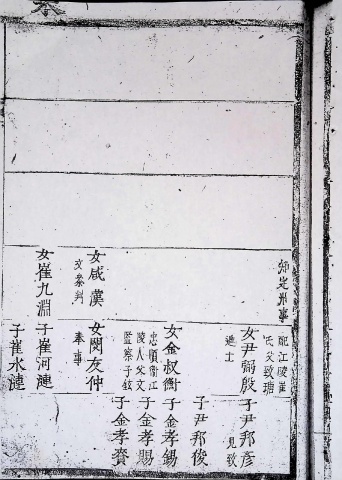 知定州事
女咸漢
女崔九淵
配江陵崔
氏父致
女尹弼殷
進士
女金叔衡
忠順衛江
陵人父文
監察子鉉
女閔友仲
奉事
子崔河漣
子崔水漣
子尹邦彦
子尹邦俊
子金孝錫
子金孝賜
子金孝賚